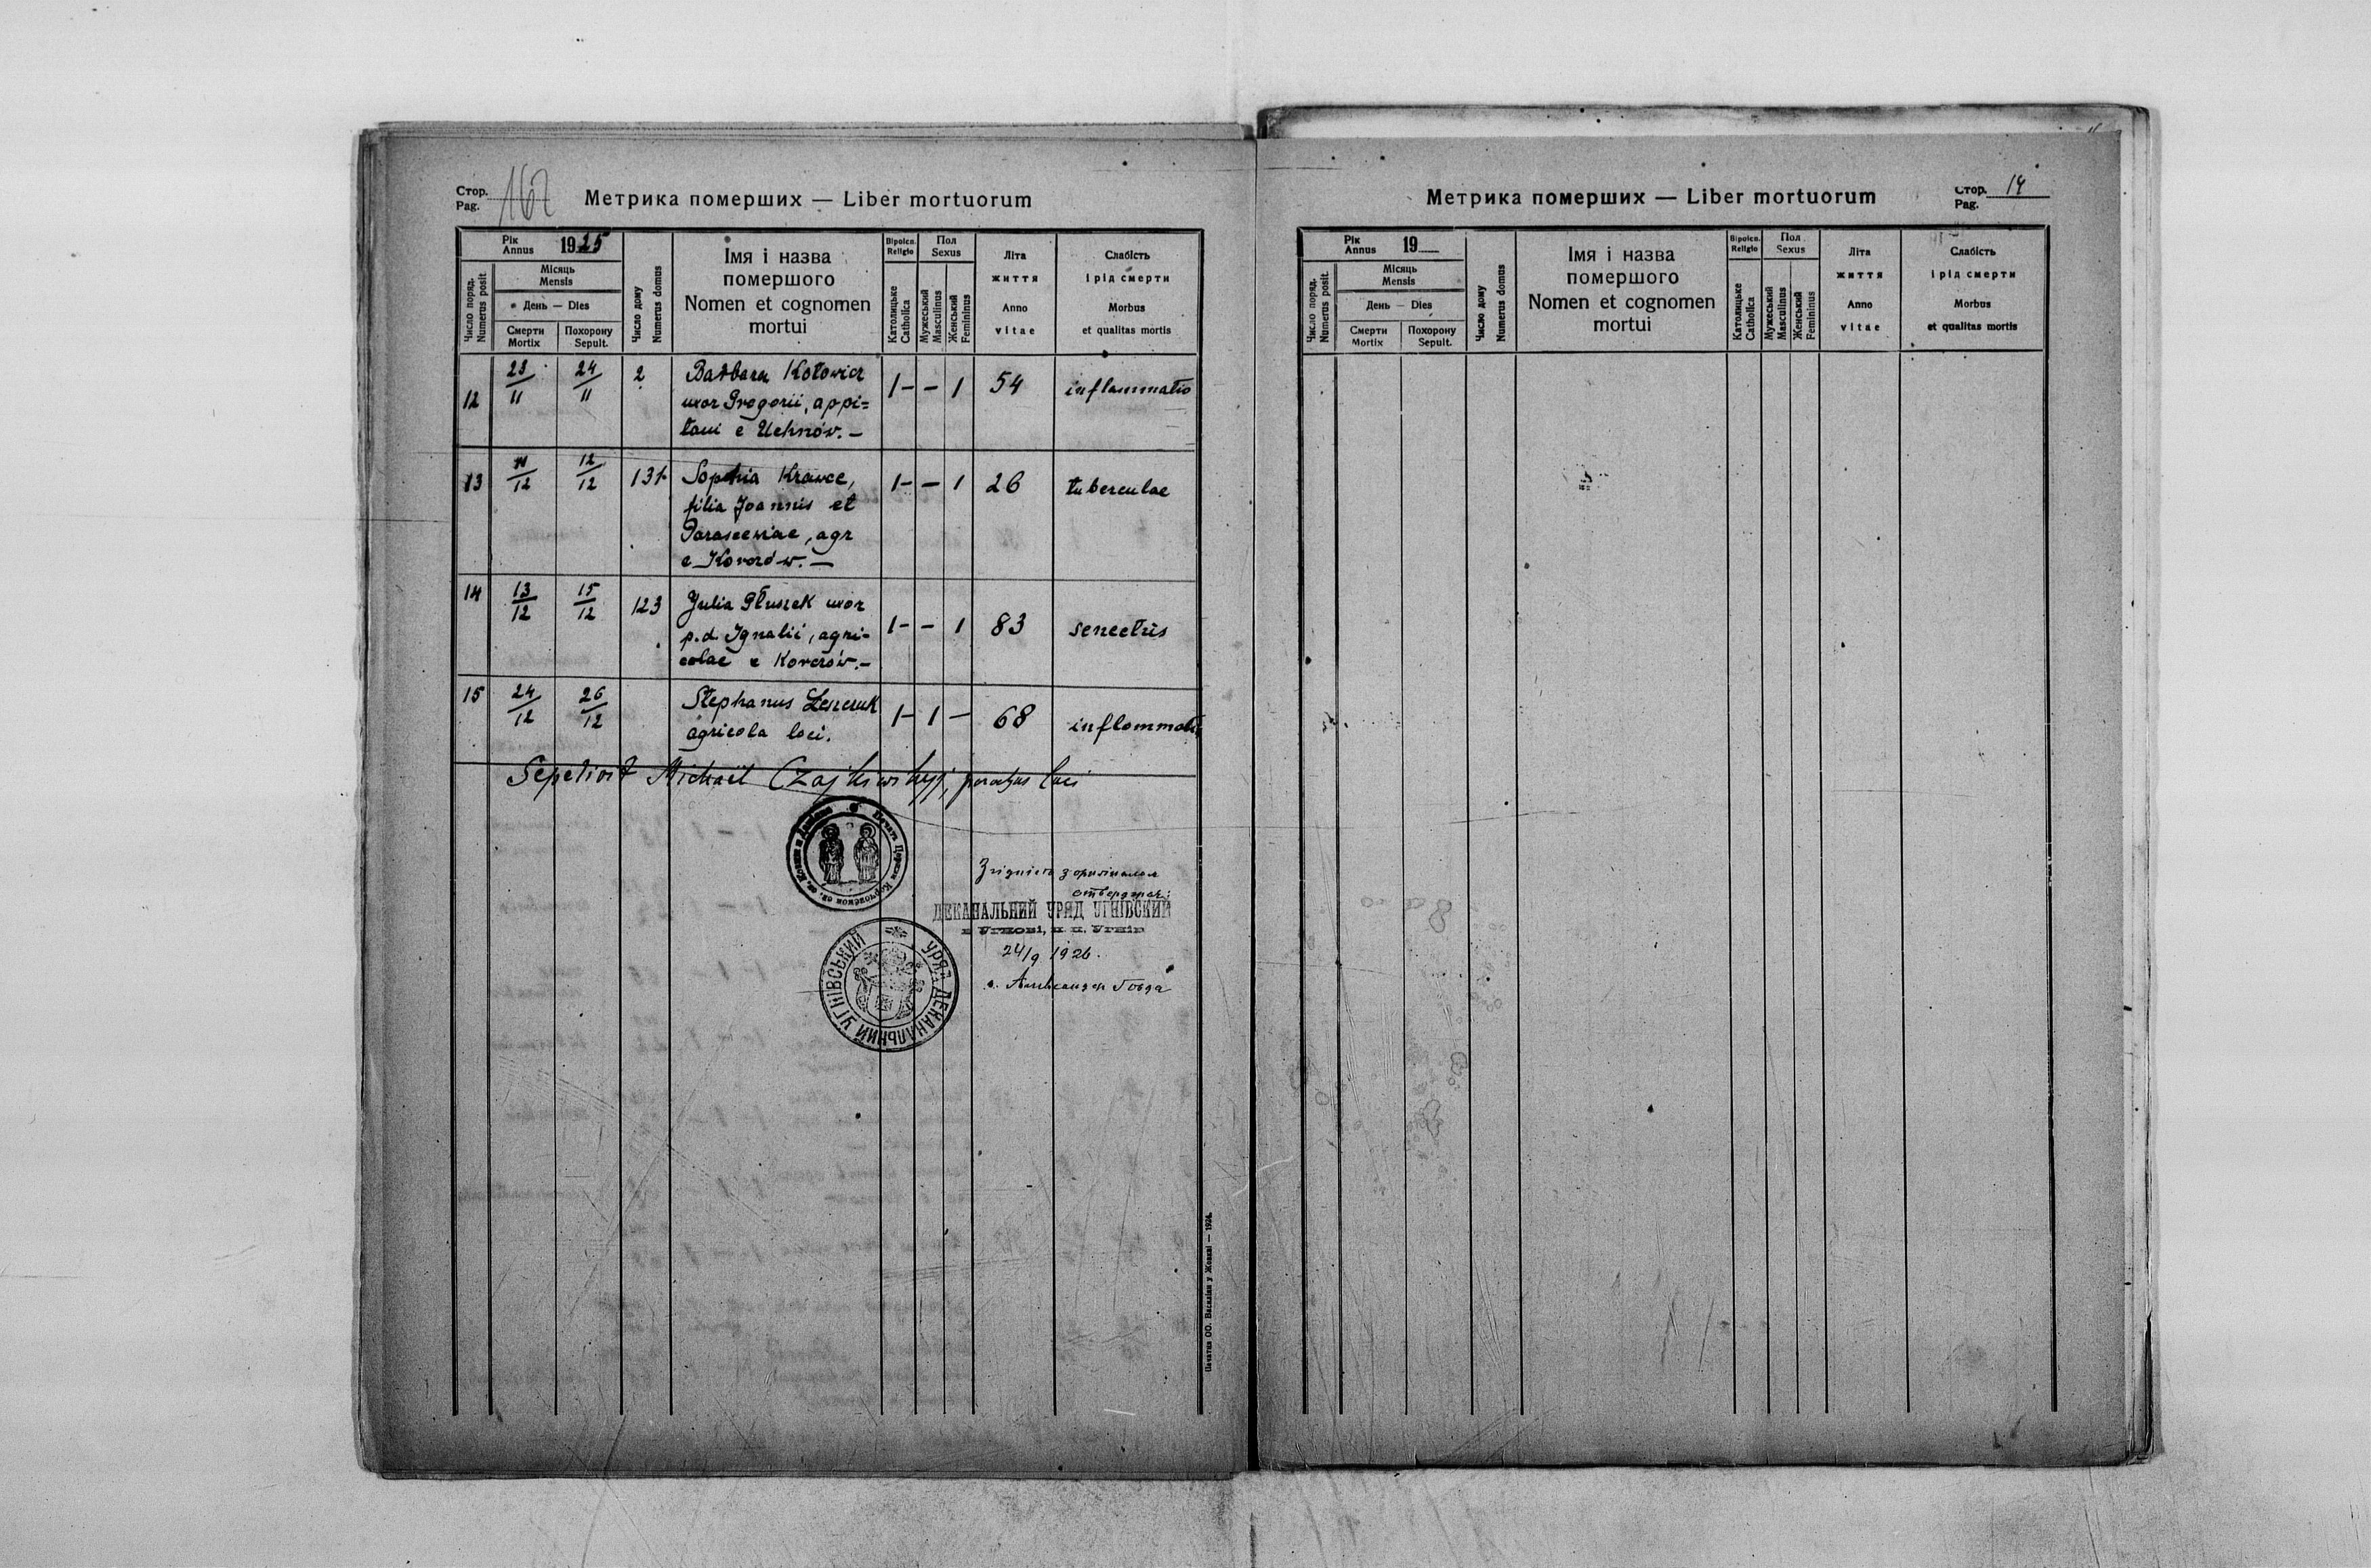 Стор.
Pag.
167
Метрика померших — Liber mortuorum
Рік
Annus
1925
Число поряд.
Numerus posit.
Місяць
Mensis
День — Dies
Смерти
Mortix
Похорону
Sepult.
Число дому
Numerus domus
Імя і назва
помершого
Nomen et cognomen
mortui
Віроісп.
Religio
Католицьке
Catholica
Пол
Sexus
Мужеський
Masculinus
Женський
Femininus
Літа
життя
Anno
vitae
Слабість
і рід смерти
Morbus
et qualitas mortis
12 23/11 24/11 2 Barbara Kotowicz 1 - - 1 54 inflammatio
uxor Gregorii, oppi=
tani e Uchnów. —
13 11/12 12/12 131 Sophia Krawec, 1 - - 1 26 tuberculae
filia Joannis et
Parasceviae, agr
e Korczów. —
14 13/12 15/12 123 Julia Głuszek uxor 1 - - 1 83 senectus
p.d. Ignatii, agri=
colae e Korczów. —
15 24/12 26/12 Stephanus Leszczuk 1 - 1 - 68 inflammatio
agricola loci.
Sepelivit Michaël Czajkiwskyj, parochus loci
Згідність з оригіналом
стверджає:
ДЕКАНАЛЬНИЙ УРЯД УГНІВСКИЙ
в Угнові, п. п. Угнів
24/9 1926.
о. Александер Говда
УРЯД ДЕКАНАЛЬНИЙ УГНІВСЬКИЙ
Печатня ОО. Василіян у Жовкві — 1924.
Метрика померших — Liber mortuorum
Стор.
Pag.
14
Рік
Annus
19
Число поряд.
Numerus posit.
Місяць
Mensis
День — Dies
Смерти
Mortix
Похорону
Sepult.
Число дому
Numerus domus
Імя і назва
помершого
Nomen et cognomen
mortui
Віроісп.
Religio
Католицьке
Catholica
Пол
Sexus
Мужеський
Masculinus
Женський
Femininus
Літа
життя
Anno
vitae
Слабість
і рід смерти
Morbus
et qualitas mortis